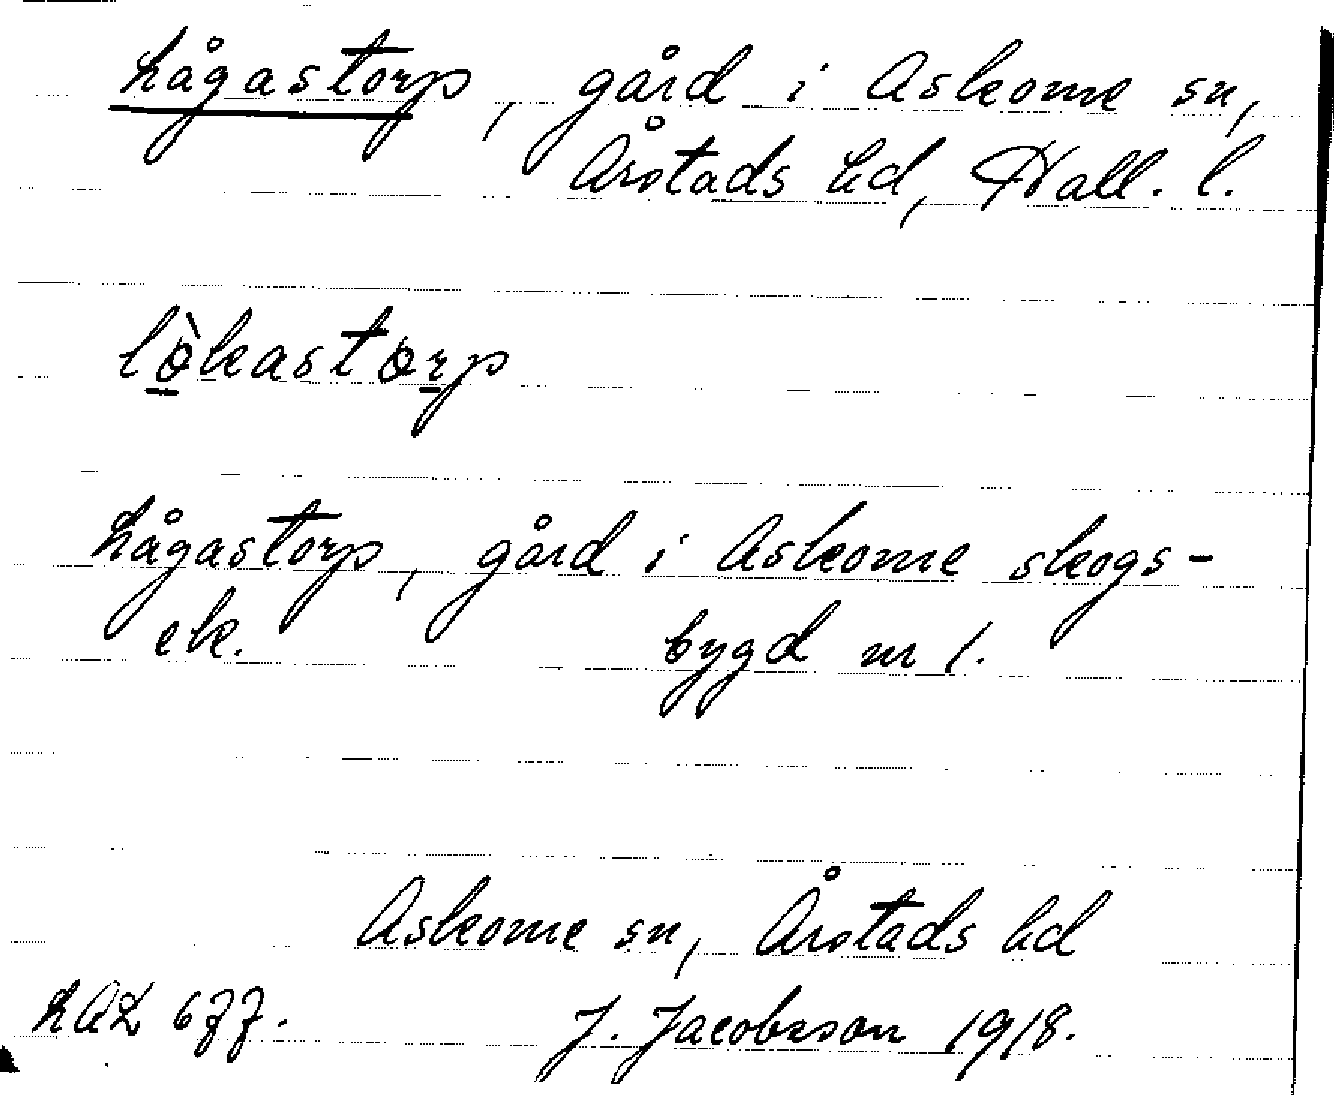 Lågastorp, gård i Askome sn,
Årstads hd, Hall. l.
lò̱kastoṟp
Lågastorp, gård i Askome skogs-
ek. bygd nr 1.
Askome sn, Årstads hd
LAL 677. J. Jacobsson 1918.